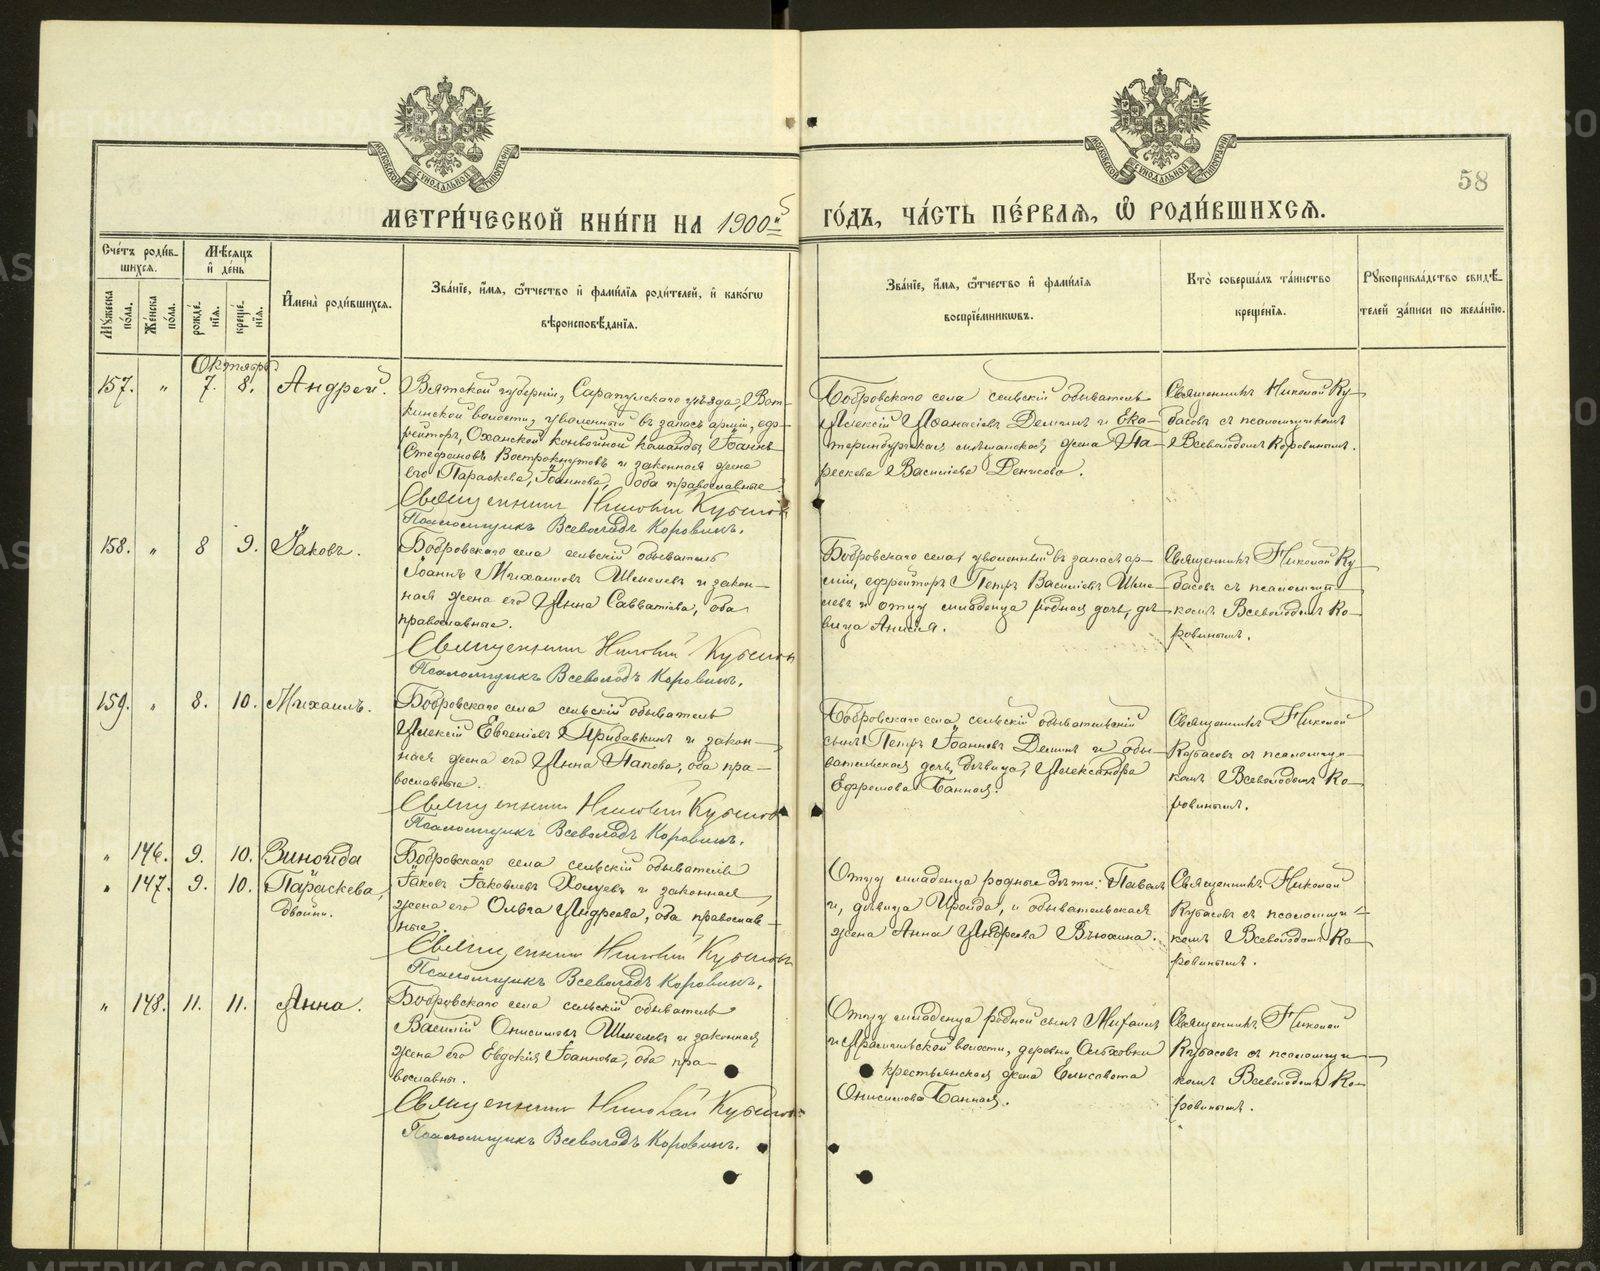 МЕТРИ́ЧЕСКОЙ КНИ́ГИ НА 1900й ГО́ДЪ, ЧА́СТЬ ПЕ́РВАѦ, Ѡ РОДИ́ВШИХСѦ.
58
Сче́тъ роди́в-
шихсѧ.
Мѣ́сѧцъ
и҆ де́нь
Мꙋ́жеска
по́ла.
Же́нска
по́ла.
рожде́-
нїѧ.
креще́-
нїѧ.
И҆мена̀ роди́вшихсѧ.
Зва́нїе, и҆́мѧ, ѻ҆́тчество и҆ фами́лїѧ роди́телей, и҆ како́гѡ
вѣроисповѣ́данїѧ.
Зва́нїе, и҆́мѧ, ѻ҆́тчество и҆ фами́лїѧ
воспрїе́мникѡвъ.
Кто̀ соверша́лъ та́инство
креще́нїѧ.
Рꙋкоприкла́дство свидѣ́-
телей за́писи по жела́нїю.
Октябрь
157. " 7. 8. Андрей.
Вятской губерніи, Сарапульскаго уѣзда, Вот-
кинской волости, уволенный въ запасъ арміи, еф-
рейторъ, Оханской конвойной команды Іоаннъ
Стефановъ Вострокнутовъ и законная жена
его Параскева Іоаннова, оба православные.
Священникъ Николай Кубасовъ
Псаломщикъ Всеволодъ Коровинъ.
Бобровскаго села сельскій обыватель
Алексій Аѳанасіевъ Деминъ и Ека-
теринбургская мѣщанская жена Па-
раскева Василіева Денисова.
Священникъ Николай Ку-
басовъ съ псаломщикомъ
Всеволодомъ Коровинымъ.
158. " 8 9. Іаковъ.
Бобровскаго села сельскій обыватель
Іоаннъ Михаиловъ Шмелевъ и закон-
ная жена его Анна Савватіева, оба
православные.
Священникъ Николай Кубасовъ
Псаломщикъ Всеволодъ Коровинъ.
Бобровскаго села, уволенный въ запасъ ар-
міи, ефрейторъ Петръ Василіевъ Шме-
левъ и отцу младенца родная дочь, дѣ-
вица Анисія.
Священникъ Николай Ку-
басовъ съ псаломщи-
комъ Всеволодомъ Ко-
ровинымъ.
159. " 8. 10. Михаилъ.
Бобровскаго села сельскій обыватель
Алексій Евгеніевъ Прибавкинъ и закон-
ная жена его Анна Папова, оба пра-
вославные.
Священникъ Николай Кубасовъ
Псаломщикъ Всеволодъ Коровинъ.
Бобровскаго села, сельскій обывательскій
сынъ Петръ Іоанновъ Деминъ и обы-
вательская дочь, дѣвица, Александра
Ефремова Банная.
Священникъ Николай
Кубасовъ съ псаломщи-
комъ Всеволодомъ Ко-
ровинымъ.
" 146. 9. 10. Зинаида
" 147. 9. 10. Параскева,
двойни.
Бобровскаго села сельскій обыватель
Іаковъ Іаковлевъ Холуевъ и законная
жена его Ольга Андреева, оба православ-
ные.
Священникъ Николай Кубасовъ
Псаломщикъ Всеволодъ Коровинъ.
Отцу младенца родные дѣти: Павелъ
и, дѣвица Ираида, и обывательская
жена Анна Андреева Вьюхина.
Священникъ Николай
Кубасовъ съ псаломщи-
комъ Всеволодомъ Ко-
ровинымъ.
" 148. 11. 11. Анна.
Бобровскаго села сельскій обыватель
Василій Онисимовъ Шмелевъ и законная
жена его Евдокія Іоаннова, оба пра-
вославны.
Священникъ Николай Кубасовъ
Псаломщикъ Всеволодъ Коровинъ.
Отцу младенца родной сынъ Михаилъ
и Арамильской волости, деревни Ольховки
крестьянская жена Елисавета
Онисимова Банная.
Священникъ Николай
Кубасовъ съ псаломщи-
комъ Всеволодомъ Ко-
ровинымъ.
METRIKI.GASO-URAL.RU